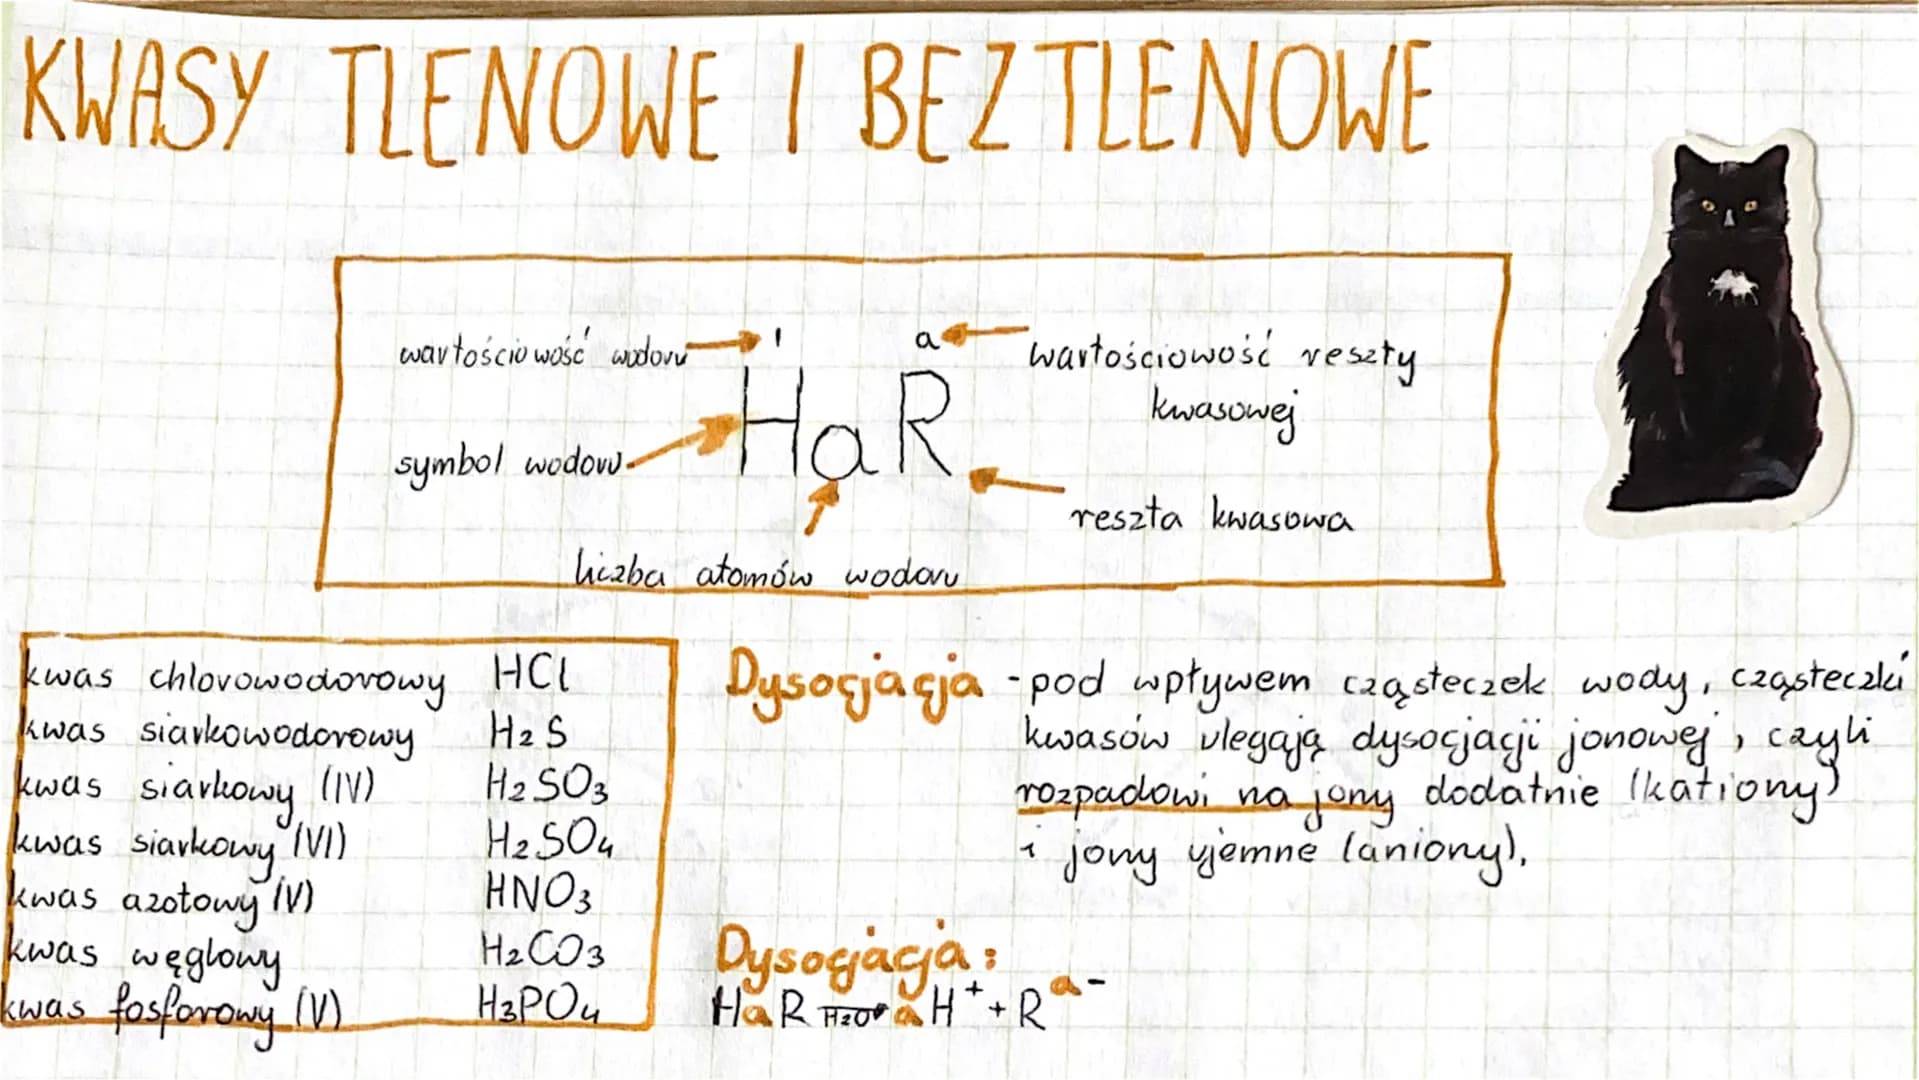 KWASY TLENOWE I BEZTLENOWE
wartościowość wodoru
I
a
wartościowość reszty
kwasowej
HaR
symbol wodoru
reszta kwasowa
liczba atomów wodoru
kwas chlorowodorowy HCl
kwas siarkowodorowy H2S
kwas siarkowy (IV) H2SO3
kwas siarkowy (VI) H2SO4
kwas azotowy (V) HNO3
kwas węglowy H2CO3
kwas fosforowy (V) H3PO4
Dysocjacja - pod wpływem cząsteczek wody, cząsteczki
kwasów ulegają dysocjacji jonowej, czyli
rozpadowi na jony dodatnie (kationy)
i jony ujemne (aniony).
Dysocjacja:
HaR H2O→ aH⁺ + Rᵃ⁻